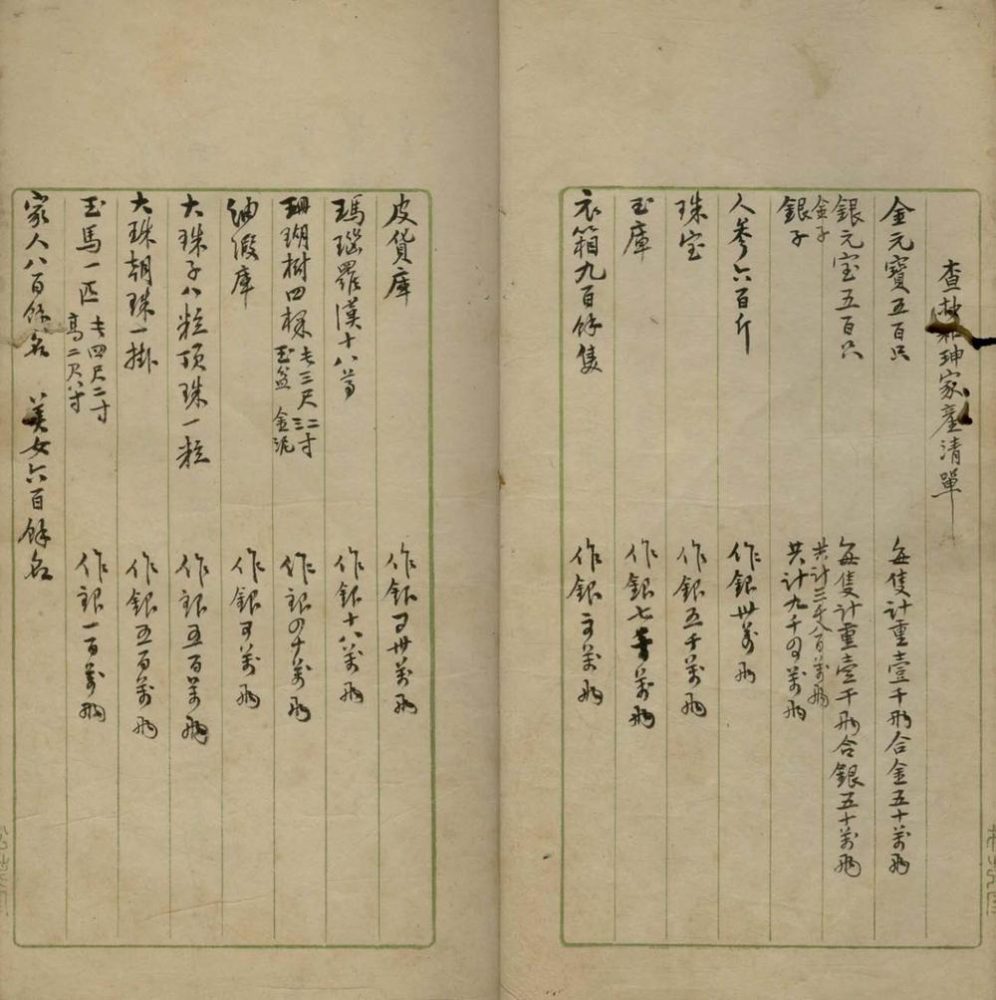 查抄和珅家產清單
金元寶五百只 每隻計重壹千兩合金五十萬兩
銀元宝五百只 每隻計重壹千兩合銀五十萬兩
金子 共計二千八百萬兩
銀子 共計九千四萬兩
人參六百斤 作銀卅萬兩
珠宝 作銀五千萬兩
玉庫 作銀七千萬兩
衣箱九百餘隻 作銀 萬兩
皮貨庫 作銀 卅萬兩
瑪瑙羅漢十八尊 作銀十八萬兩
珊瑚樹四株 長三尺二寸 玉盆 金泥 作銀四十萬兩
䌷假庫 作銀 萬兩
大珠子八粒頂珠一粒 作銀五百萬兩
大珠朝珠一掛 作銀五百萬兩
玉馬一匹 長四尺二寸 高二尺八寸 作銀一百萬兩
家人八百餘名 美女六百餘名